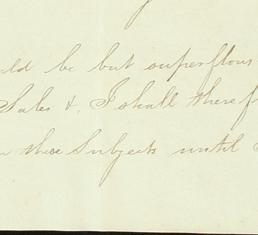 ld be but superflous
Sales &. I shall theref
n these Subjects until